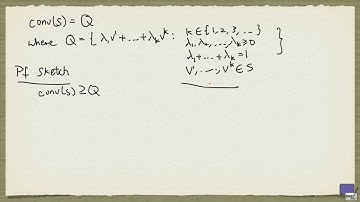 conv(S) = Q
where Q = { λ₁v¹ + ... + λₖvᵏ : k ∈ {1, 2, 3, ... }
λ₁, λ₂, ..., λₖ ≥ 0
λ₁ + ... + λₖ = 1
v¹, ..., vᵏ ∈ S }
Pf sketch
conv(S) ⊇ Q